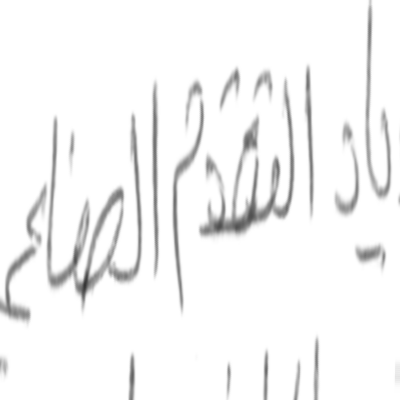 ياد التقدم الصناعي